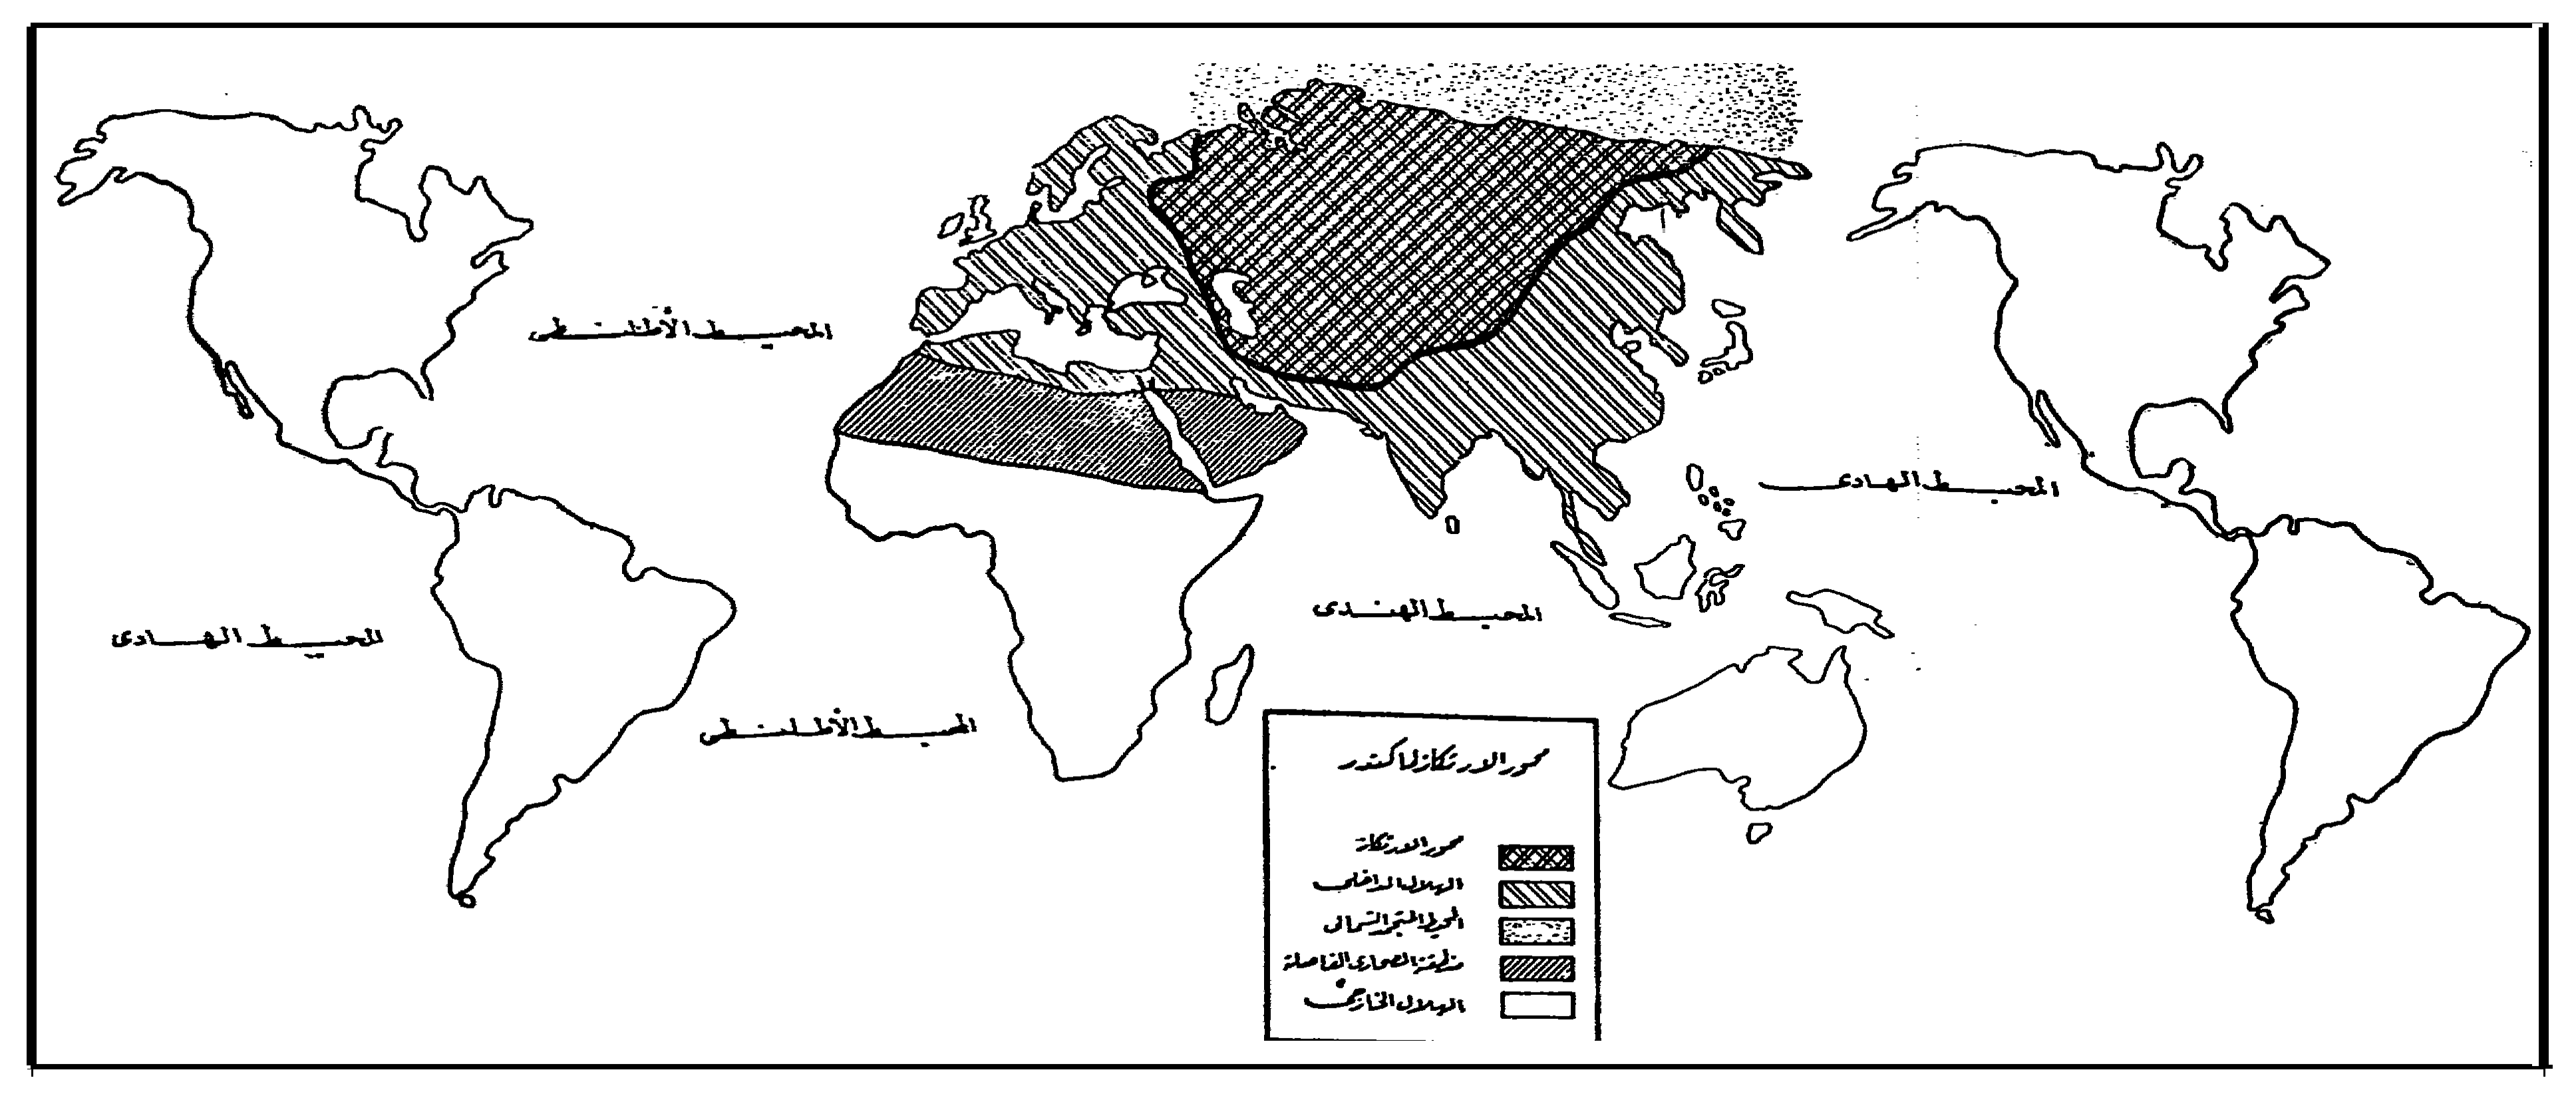 المحيط الأطلنطى
المحيط الهادى
المحيط الهندى
المحيط الهادى
المحيط الأطلنطى
محور الارتكاز لماكندر
محور الارتكاز
الهلال الداخلى
المحيط المتجمد الشمالى
منطقة الصحارى الفاصلة
الهلال الخارجى